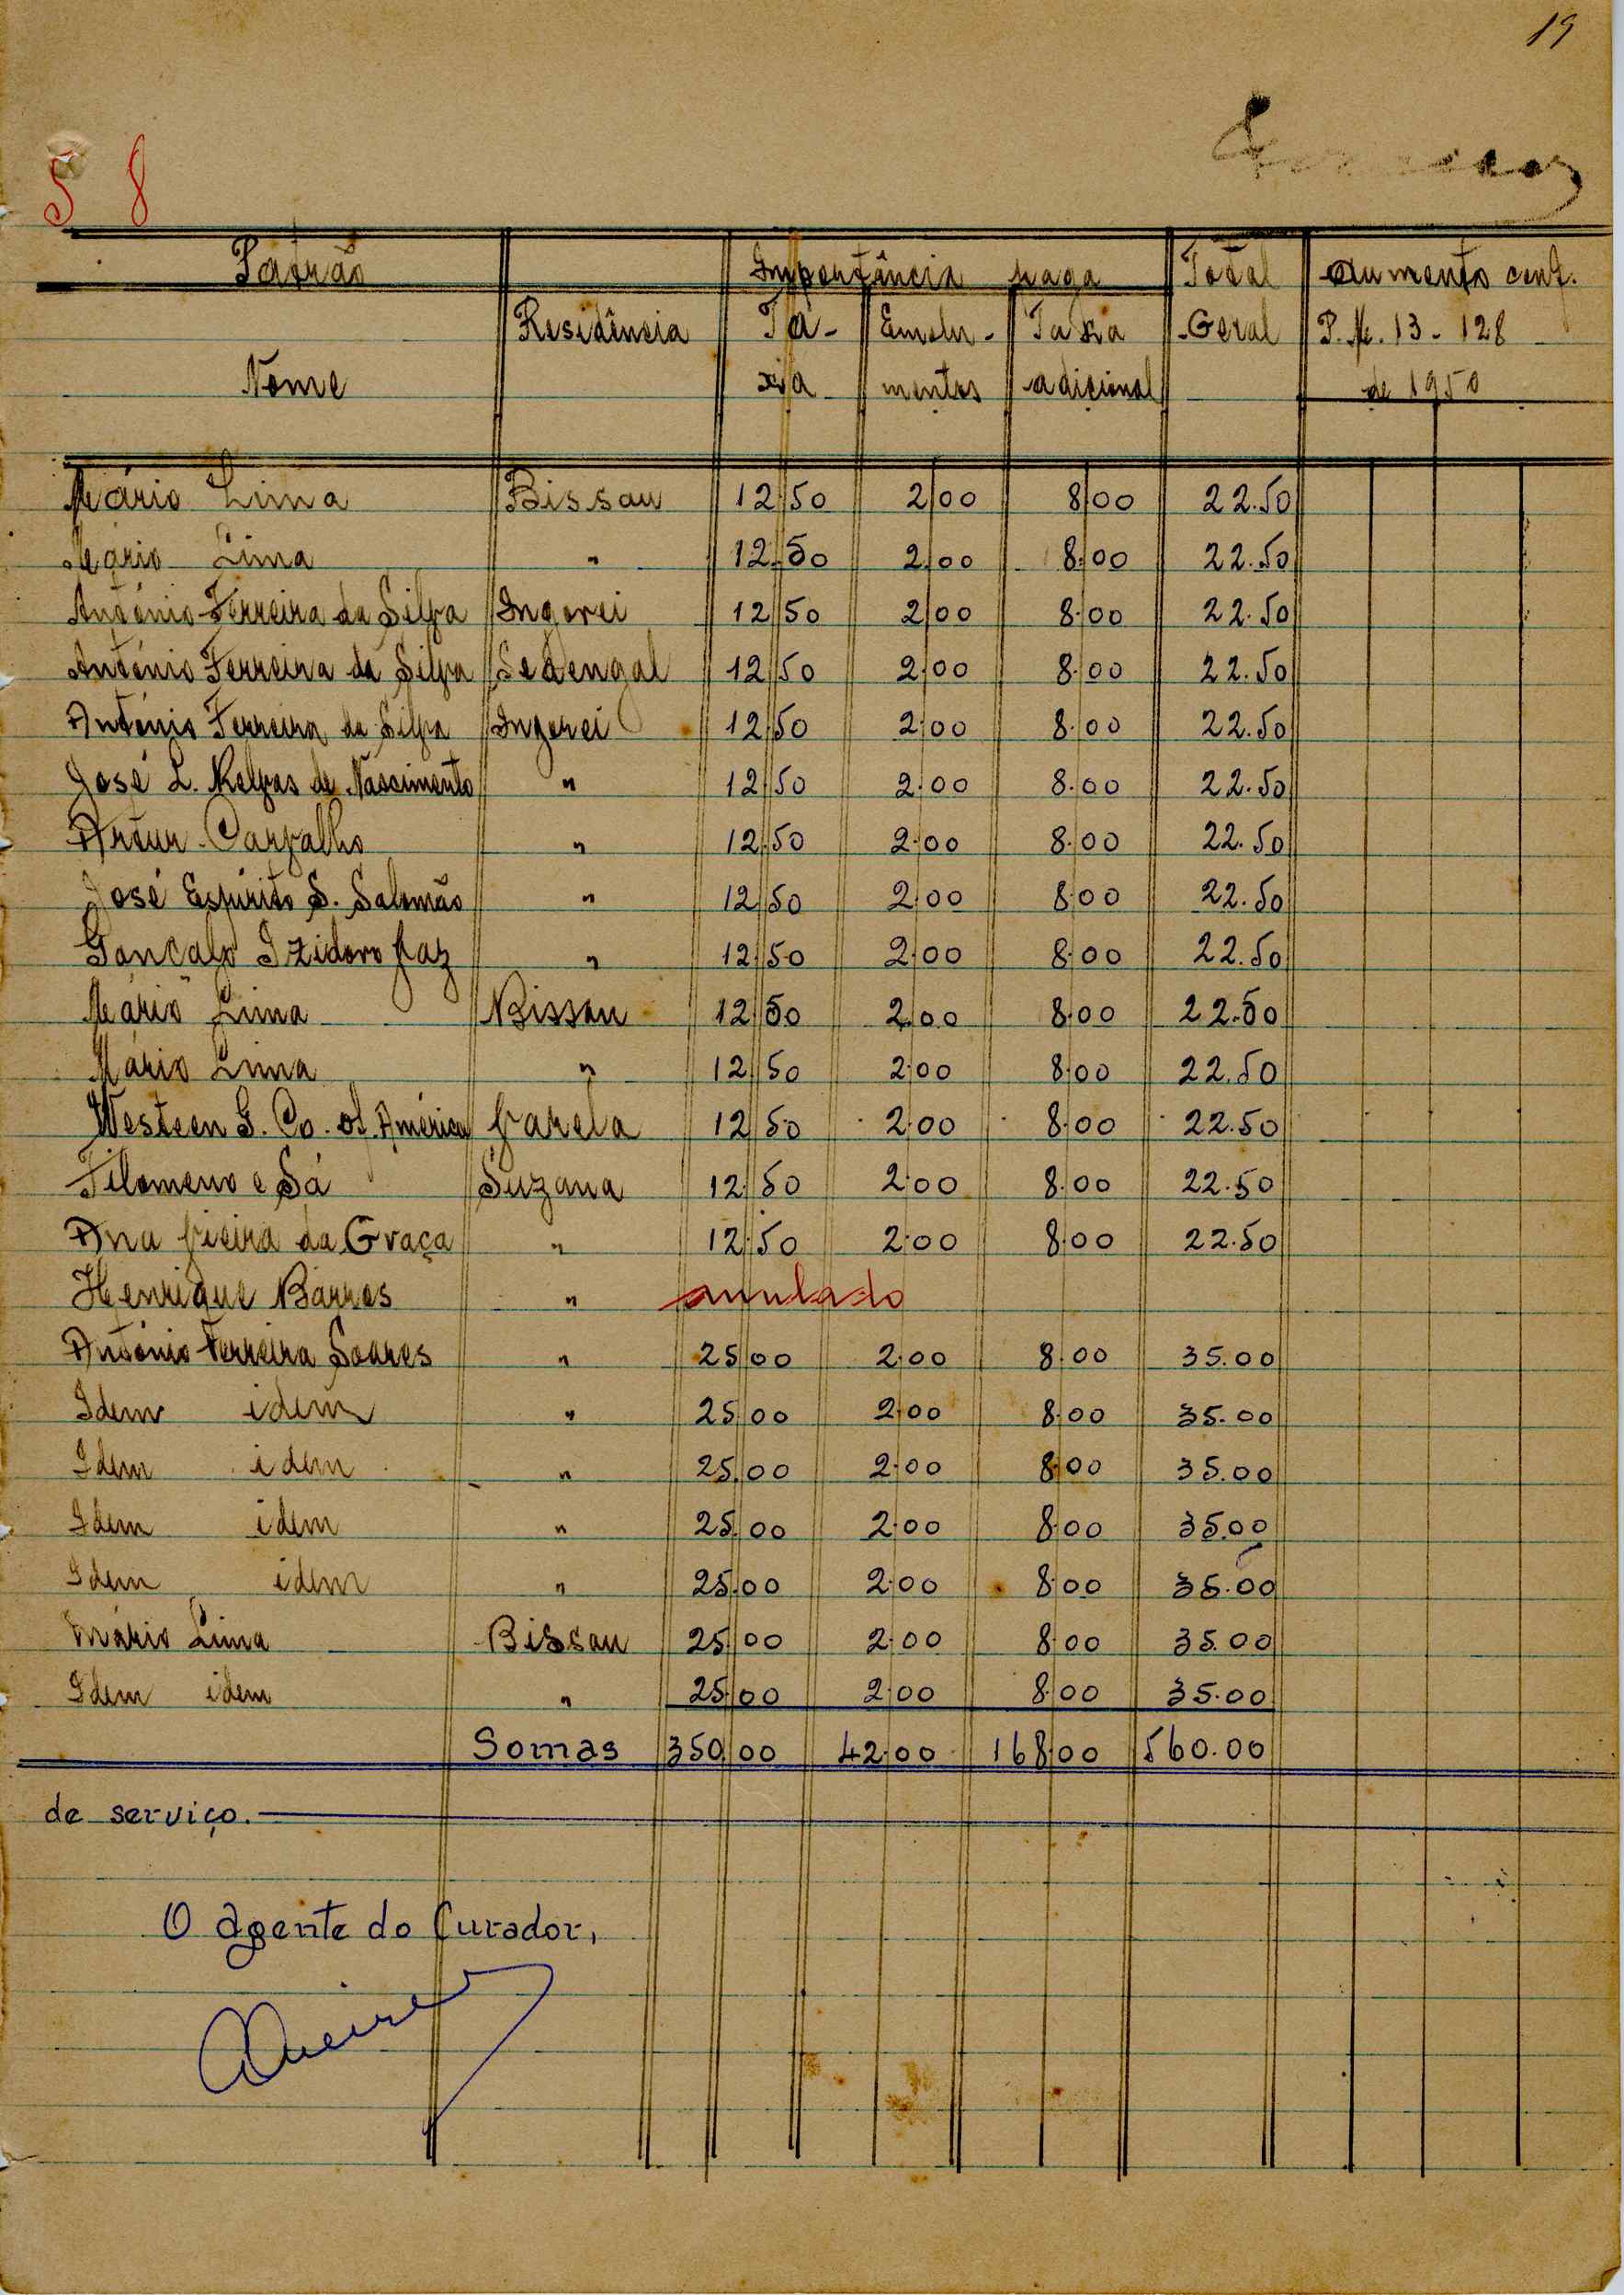 19
5 8
Patrão Importância paga Total Aumento conf.
Residência Ta- Emolu- Taxa Geral P. Nº. 13-128
Nome xa mentos adicional de 1950
Mário Lima Bissau 12.50 2.00 8.00 22.50
Mário Lima " 12.50 2.00 8.00 22.50
António Ferreira da Silva Ingorei 12.50 2.00 8.00 22.50
António Ferreira da Silva Sedengal 12.50 2.00 8.00 22.50
António Ferreira da Silva Ingorei 12.50 2.00 8.00 22.50
José L. Relvas de Nascimento " 12.50 2.00 8.00 22.50
Artur Carvalho " 12.50 2.00 8.00 22.50
José Espírito S. Salomão " 12.50 2.00 8.00 22.50
Gonçalo Izidoro Vaz " 12.50 2.00 8.00 22.50
Mário Lima Bissau 12.50 2.00 8.00 22.50
Mário Lima " 12.50 2.00 8.00 22.50
Westeen G. Co. of. América Varela 12.50 2.00 8.00 22.50
Filomeno e Sá Suzana 12.50 2.00 8.00 22.50
Ana Vieira da Graça " 12.50 2.00 8.00 22.50
Henrique Barros " anulado
António Ferreira Soares " 25.00 2.00 8.00 35.00
Idem idem " 25.00 2.00 8.00 35.00
Idem idem " 25.00 2.00 8.00 35.00
Idem idem " 25.00 2.00 8.00 35.00
Idem idem " 25.00 2.00 8.00 35.00
Mário Lima Bissau 25.00 2.00 8.00 35.00
Idem idem " 25.00 2.00 8.00 35.00
Somas 350.00 42.00 168.00 560.00
de serviço.
O agente do Curador,